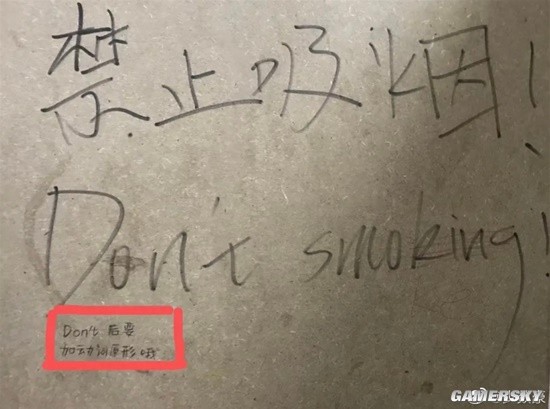 禁止吸烟!
Don't smoking!
Don't 后要
加动词原形哦
GAMERSKY